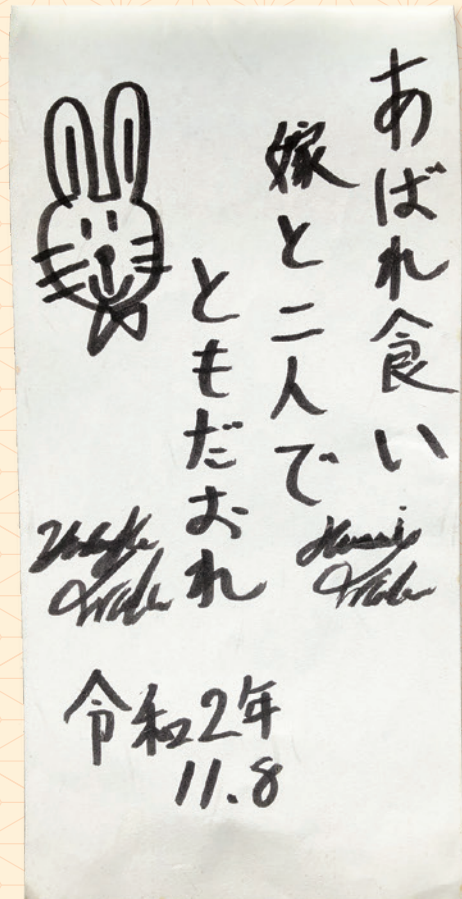 あばれ食い
嫁と二人で
ともだおれ
令和2年
11.8